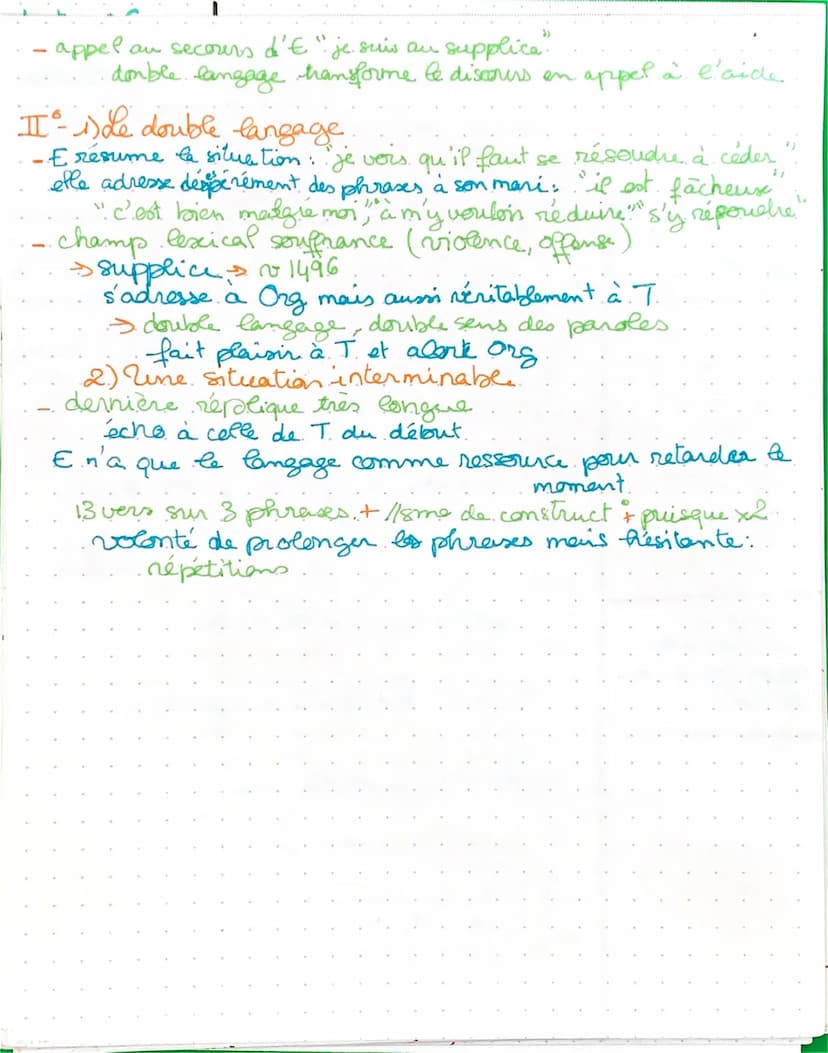 - appel au secours d'E "je suis au supplice"
double langage transforme le discours en appel à l'aide
II°- 1) Le double langage
- E résume la situation : "je vois qu'il faut se résoudre à céder"
elle adresse désespérément des phrases à son mari : "il est fâcheux"
"c'est bien malgré moi", "à m'y vouloir réduire" "s'y répoudre"
- champ lexical souffrance (violence, offense)
→ supplice → v 1496
s'adresse à Org mais aussi véritablement à T.
→ double langage, double sens des paroles
fait plaisir à T et alerte Org
2) Une situation interminable
- dernière réplique très longue
écho à celle de T. du début
E n'a que le langage comme ressource pour retarder le
moment
13 vers sur 3 phrases + //sme de construct° + puisque x2
volonté de prolonger les phrases mais hésitante :
répétitions